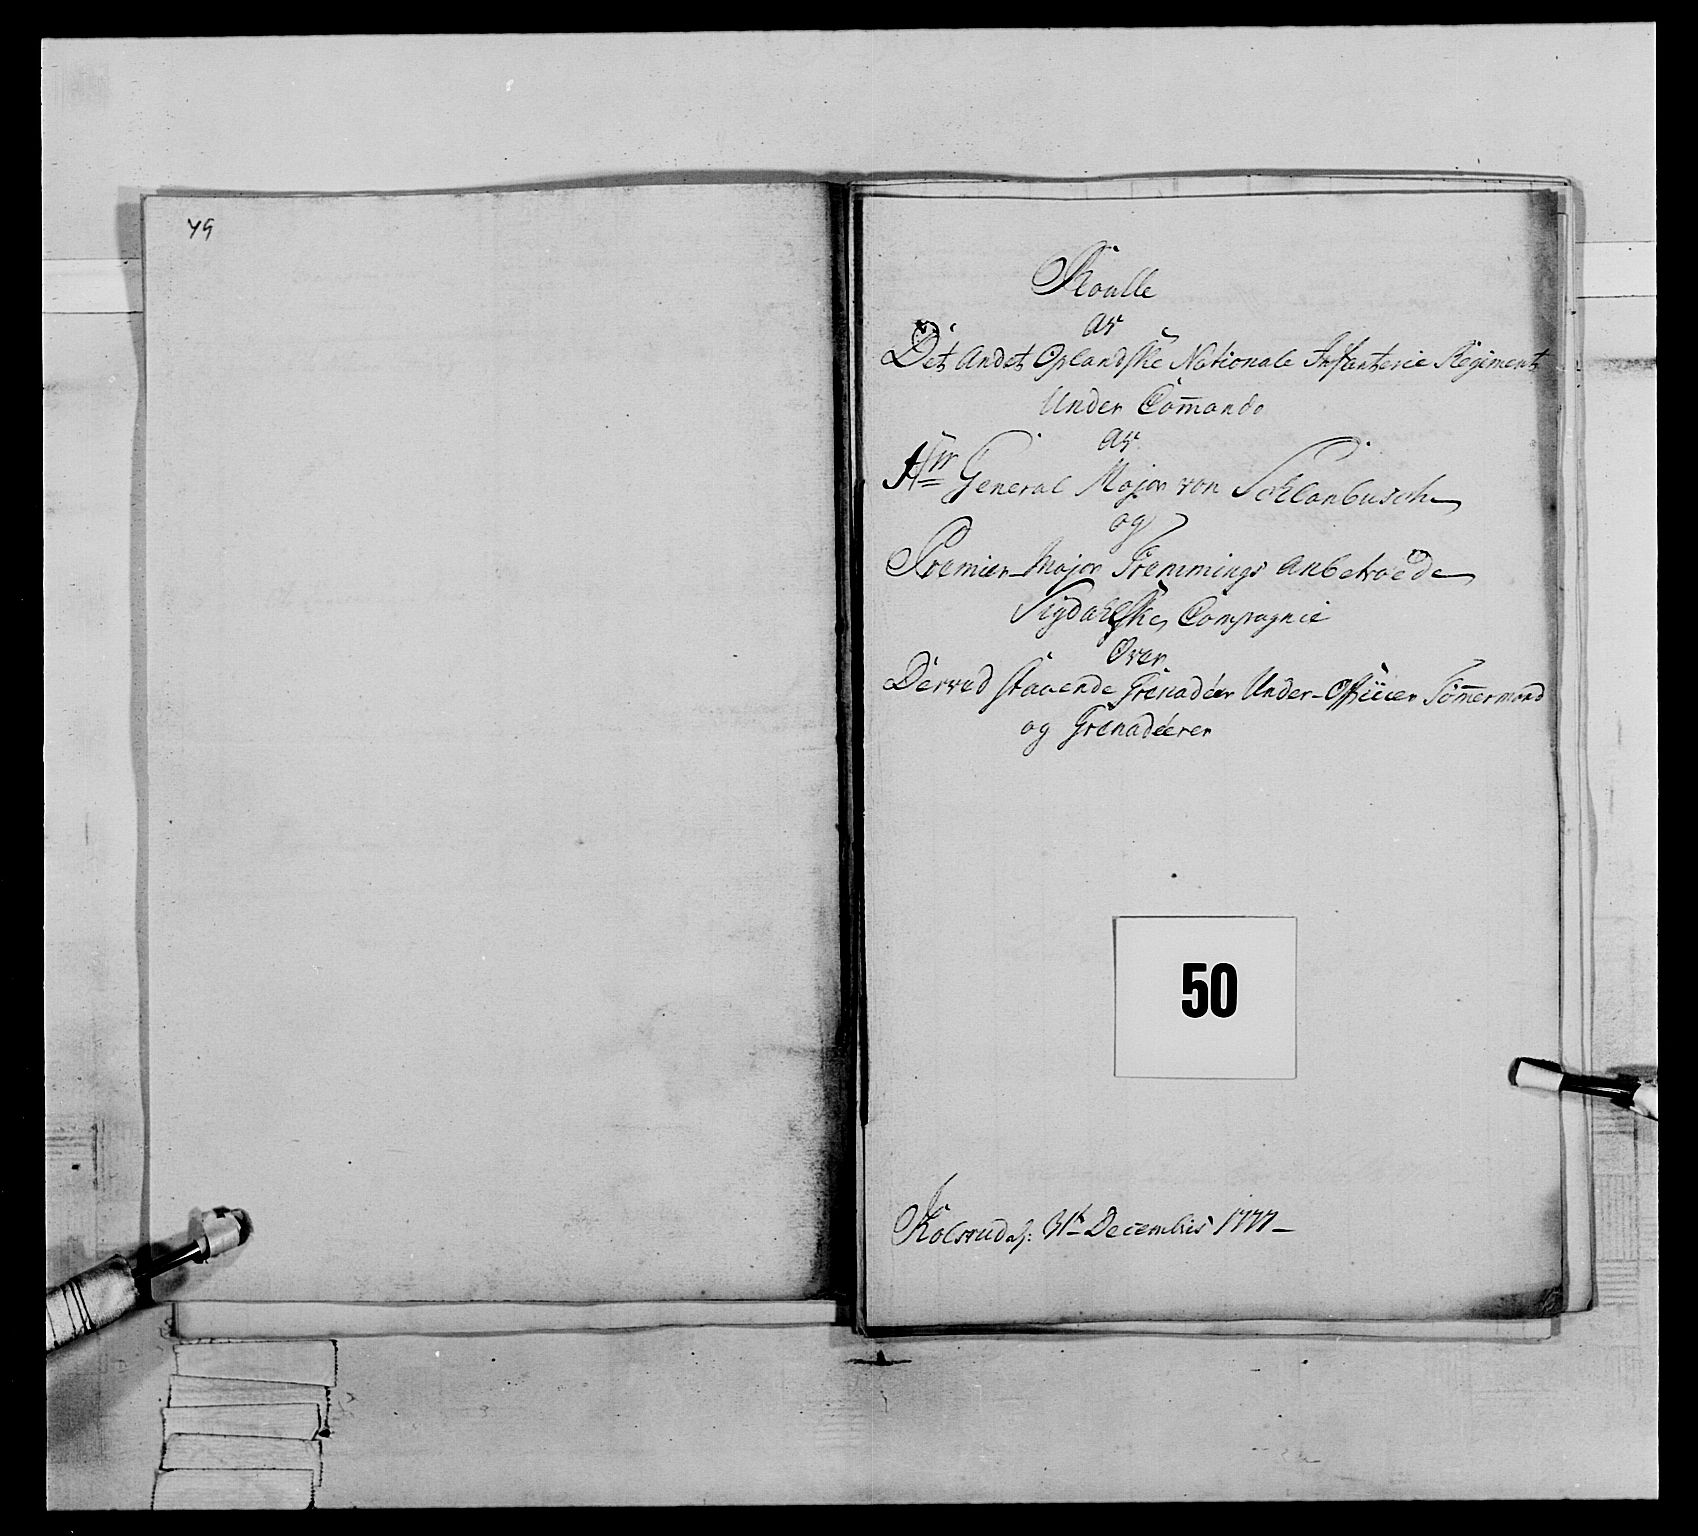 49
Roulle
av
Det Andet Oplandske Nationale Infanterie Regiment
Under Com̄ando
av
Hrr General Major von Schlanbusch
og
Premier-Major Fremmings Anbetroede
Sigdahlske Compagnie
Over
Derved staaende Grenadéer Under-Officier Töm̄ermænd
og Grenadéerer
50
31t Decembris 1777